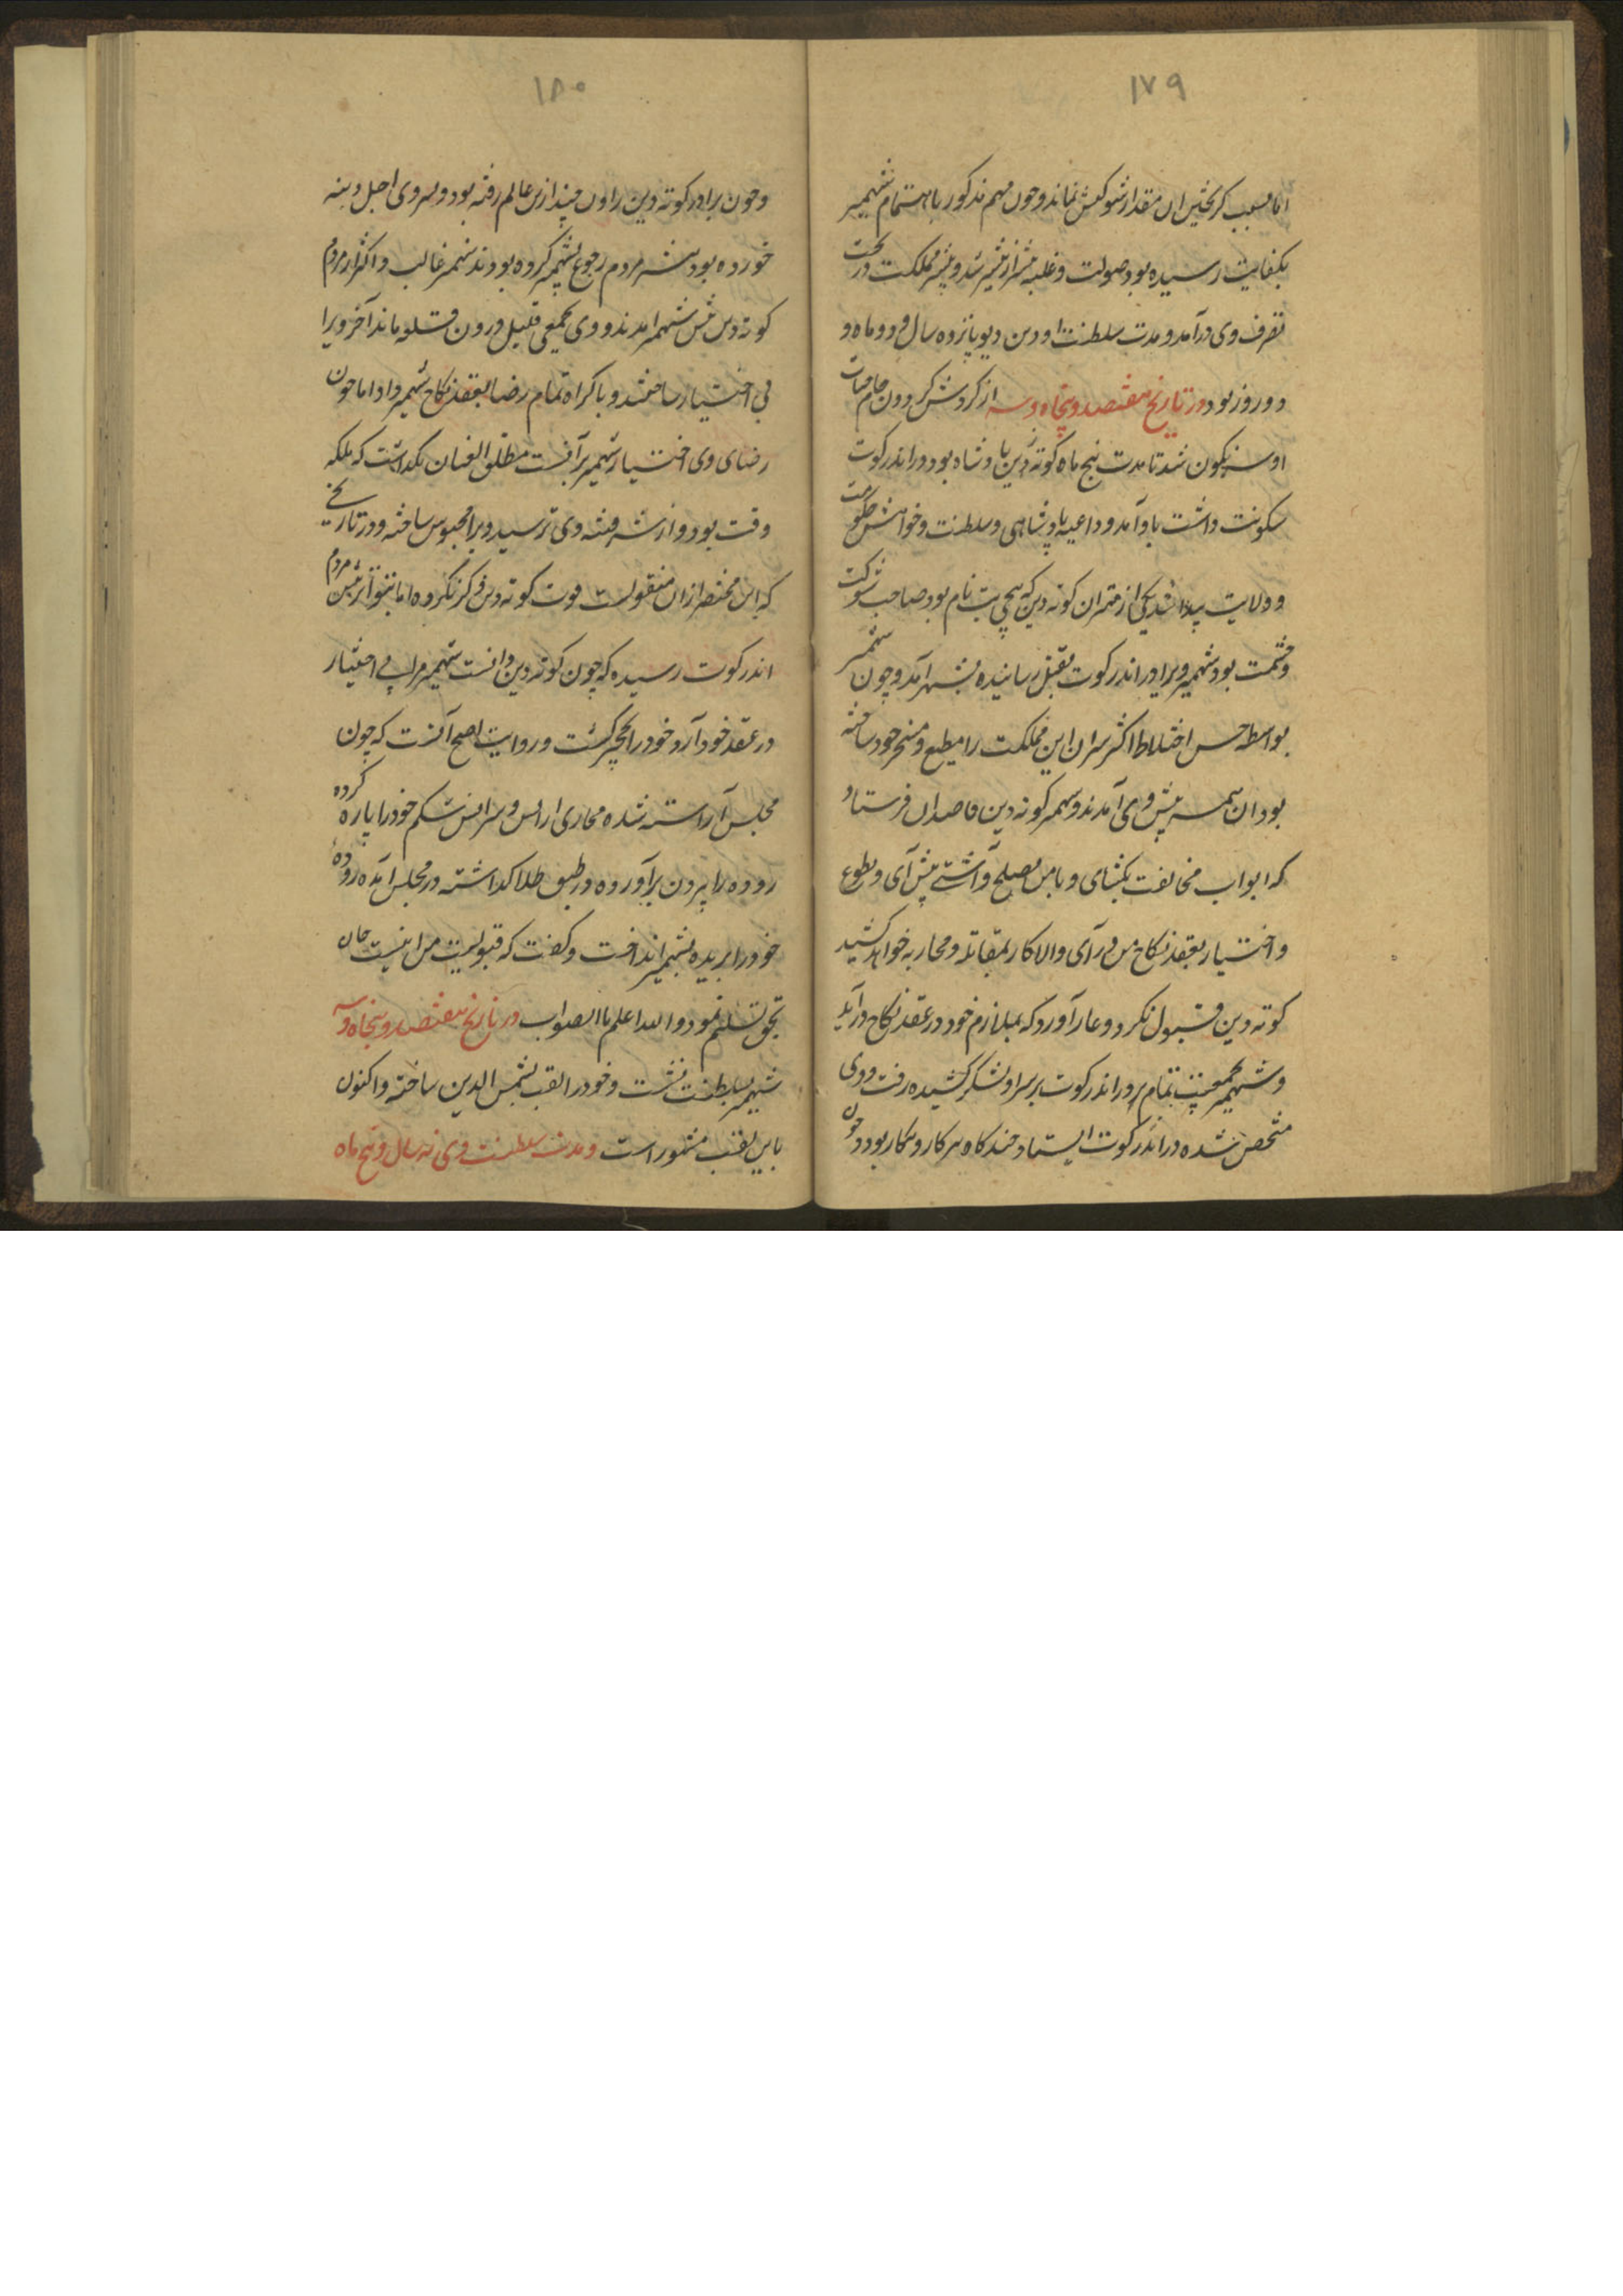 ۱۷۹
اما بسبب کریختن ان مقدار شوکتش نماند و چون مهم مذکور باهتمام شهمیر
بکفایت رسیده بود صولت و غلبه بیشتر از بیشتر شد و بیشتر مملکت در تحت
تصرف وی درآمد و مدت سلطنت اودن دیو پانزده سال و دو ماه و
دو روز بود در تاریخ هفتصد و پنجاه و سه از کردش کردون جام حیات
او سرنکون شد تا مدت پنج ماه کوته دین پادشاه بود در اندرکوت
سکونت داشت باو آمد و داعیه پادشاهی و سلطنت و خواهش حکومت
و ولایت پیدا شد یکی از مهتران کوته دین که پچی بت نام بود صاحب شوکت
و حشمت بود شهمیر ویرا در اندرکوت بقتل رسانیده بشهر آمد و چون شهمیر
بواسطه حسن اختلاط اکثر سران این مملکت را مطیع و مسخر خود ساخته
بود ان همه پیش وی آمدند و شهمیر کوته دین قاصدان فرستاد
که ابواب مخالفت بکشای و با من بصلح و آشتی پیش آی و بطوع
و اختیار بعقد نکاح من در آی والا کار بمقاتله و محاربه خواهد کشید
کوته دین قبول نکرد و عار آورد که بملازم خود در عقد نکاح درآید
و شهمیر بجمعیت تمام بر در اندرکوت بر سر او لشکر کشیده رفت و وی
متحصن شده در اندرکوت ایستاد چند کاه سر کار و پیکار بود و چون
۱۸۰
و چون برادر کوته دین راون چند ازین عالم رفته بود و پسر وی اجل دسته
خورده بود بیشتر مردم رجوع بشهمیر کرده بودند شهمیر غالب و اکثر از مردم
کوته دین پیش شهمیر امدند و وی بجمعی قلیل درون قلعه ماند آخر ویرا
بی اختیار ساختند و باکراه تمام رضا بعقد نکاح شهمیر داد اما چون
رضای وی اختیار شهمیر برآنست مطلق العنان نکداشت که ملکه
وقت بود و از شر فتنه وی ترسید ویرا محبوس ساخته و در تاریخی
که این مختصر ازان منقولست فوت کوته دین ذکر نکرده اما بتواتر پیش مردم
اندرکوت رسیده که چون کوته دین دانست شهمیر مرا بی اختیار
در عقد خود آرد خود را بخجر کشت و روایت اصح آنست که چون
مجلس آراسته شده محاری اراس و سراس شکم خود را پاره کرده
روده را بیرون برآورده در طبق طلا کداشته در مجلس آمده روده
خود را بریده بشهمیر انداخت و کفت که قبولیت من اینست جان
بحق تسلیم نمود والله اعلم باالصواب در تاریخ هفتصد و پنجاه و سه
شهمیر بسلطنت نشست و خود را لقب بشمس الدین ساخته و اکنون
باین لقب مشهور است و مدت سلطنت وی نه سال و پنج ماه